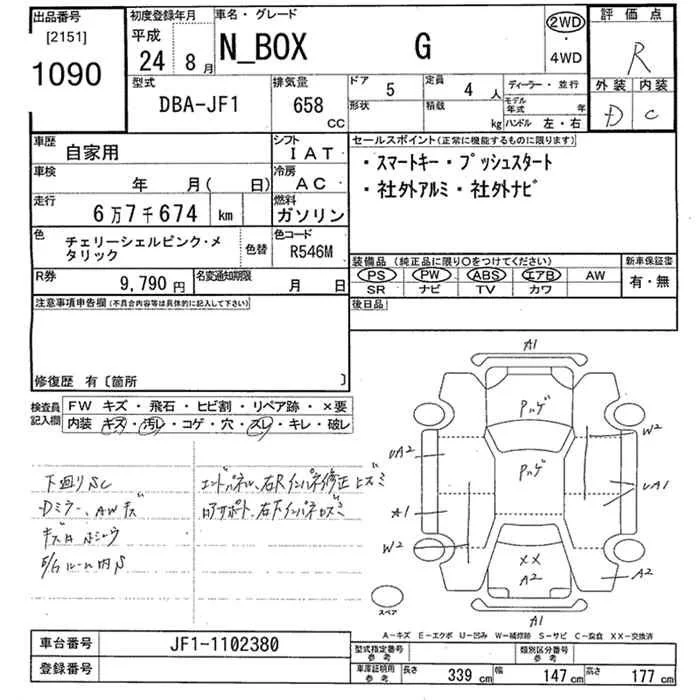 出品番号
[2151]
1090
初度登録年月
平成
24 8月
車名・グレード
N_BOX G
2WD
・
4WD
評価点
R
外装 内装
D C
型式
DBA-JF1
排気量
658
CC
ドア 5
定員 4 人
形状
積載 kg
ディーラー・並行
モデル年式 年
ハンドル 左・右
車歴
自家用
シフト
IAT
車検
年 月( 日)
冷房
AC
走行
6万7千674 km
燃料
ガソリン
色
チェリーシェルピンク・メ
タリック
色替
色コード
R546M
R券
9,790円
名変通知期限
月 日
セールスポイント(正常に機能するものに限ります)
・スマートキー・プッシュスタート
・社外アルミ・社外ナビ
装備品(純正品に限り○をつけてください)
PS PW ABS エアB AW
SR ナビ TV カワ
新車保証書
有・無
後日品
注意事項申告欄(不具合内容等は具体的に記入して下さい)
修復歴 有〔箇所 〕
検査員
記入欄
FW キズ・飛石・ヒビ割・リペア跡・×要
内装 キズ・汚レ・コゲ・穴・スレ・キレ・破レ
下廻りSC
Dミラー、AWキズ
エンドパネル、右Rインパネ修正ヒズミ
A1
Pハゲ
W2
UA2
Pハゲ
UA1
A1
W2
××
A2
A2
A1
スペア
A-キズ E-エクボ U-凹み W-補修跡 S-サビ C-腐食 XX-交換済
車台番号
JF1-1102380
登録番号
型式指定番号
参考
類別区分番号
参考
車庫証明用
参考
長さ 339 cm
幅 147 cm
高さ 177 cm